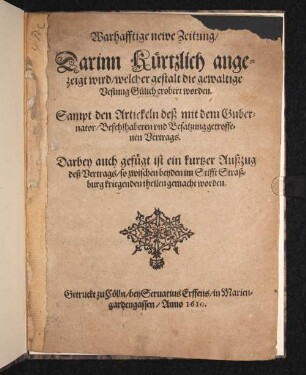 Warhafftige neiwe Zeitung/
Darinn Kürtzlich ange-
zeigt wird/welcher gestalt die gewaltige
Vestung Gülich erobert worden.
Sampt den Artickeln deß mit dem Guber-
nator/Befehlhaberen vnd Besatzung getroffe-
nen Vertrags.
Darbey auch gefügt ist ein kurtzer Außzug
deß Vertrags/so zwischen beyden im Stifft Straß-
burg kriegenden theilen gemacht worden.
Getruckt zu Cölln/bey Seruatius Erffens/in Marien-
gardengassen/Anno 1610.